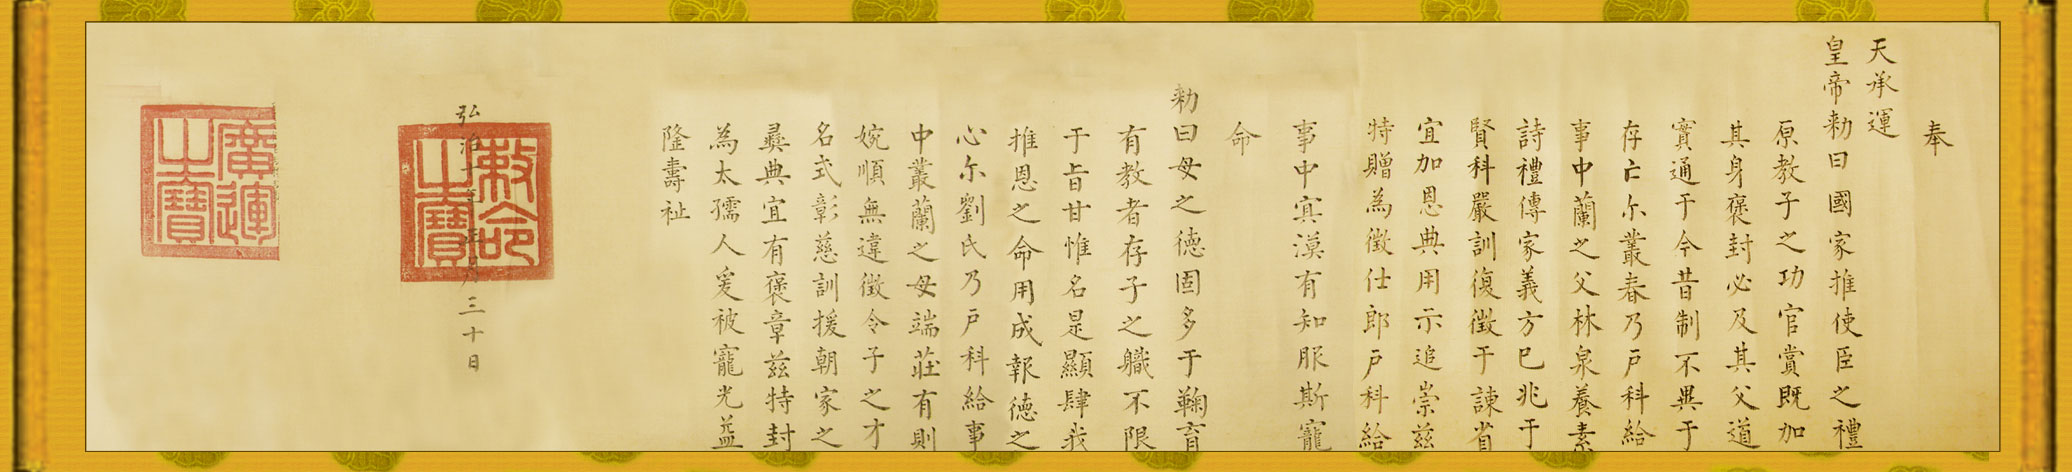 奉
天承運
皇帝勑曰國家推使臣之禮
原教子之功官賞既加
其身褒封必及其父道
實通于今昔制不異于
存亡尓叢春乃戶科給
事中蘭之父林泉養素
詩禮傳家義方已兆于
賢科嚴訓復徵于諫省
宜加恩典用示追崇茲
特贈為徵仕郎戶科給
事中㝠漠有知服斯寵
命
勑曰母之德固多于鞠育
有教者存子之職不限
于旨甘惟名是顯肆我
推恩之命用成報德之
心尓劉氏乃戶科給事
中叢蘭之母端莊有則
婉順無違徵令子之才
名式彰慈訓援朝家之
彝典宜有褒章茲特封
為太孺人爰被寵光益
隆壽祉
弘治十年 月三十日
敕命之寶
廣運之寶